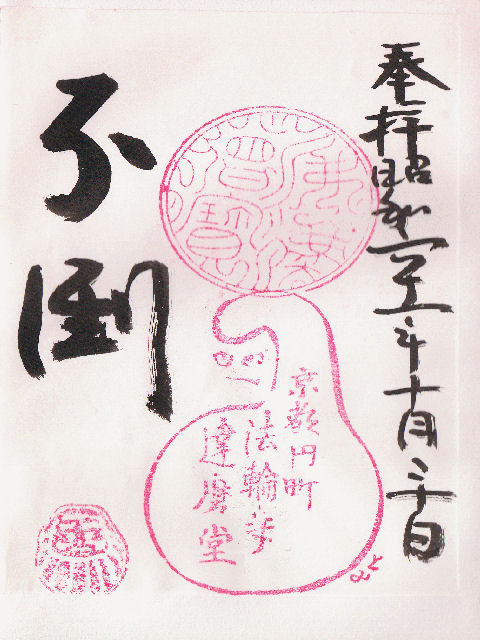 奉拝
昭和五十五年十月二十日
不倒
佛法僧寶
京都円町
法輪寺
達磨堂